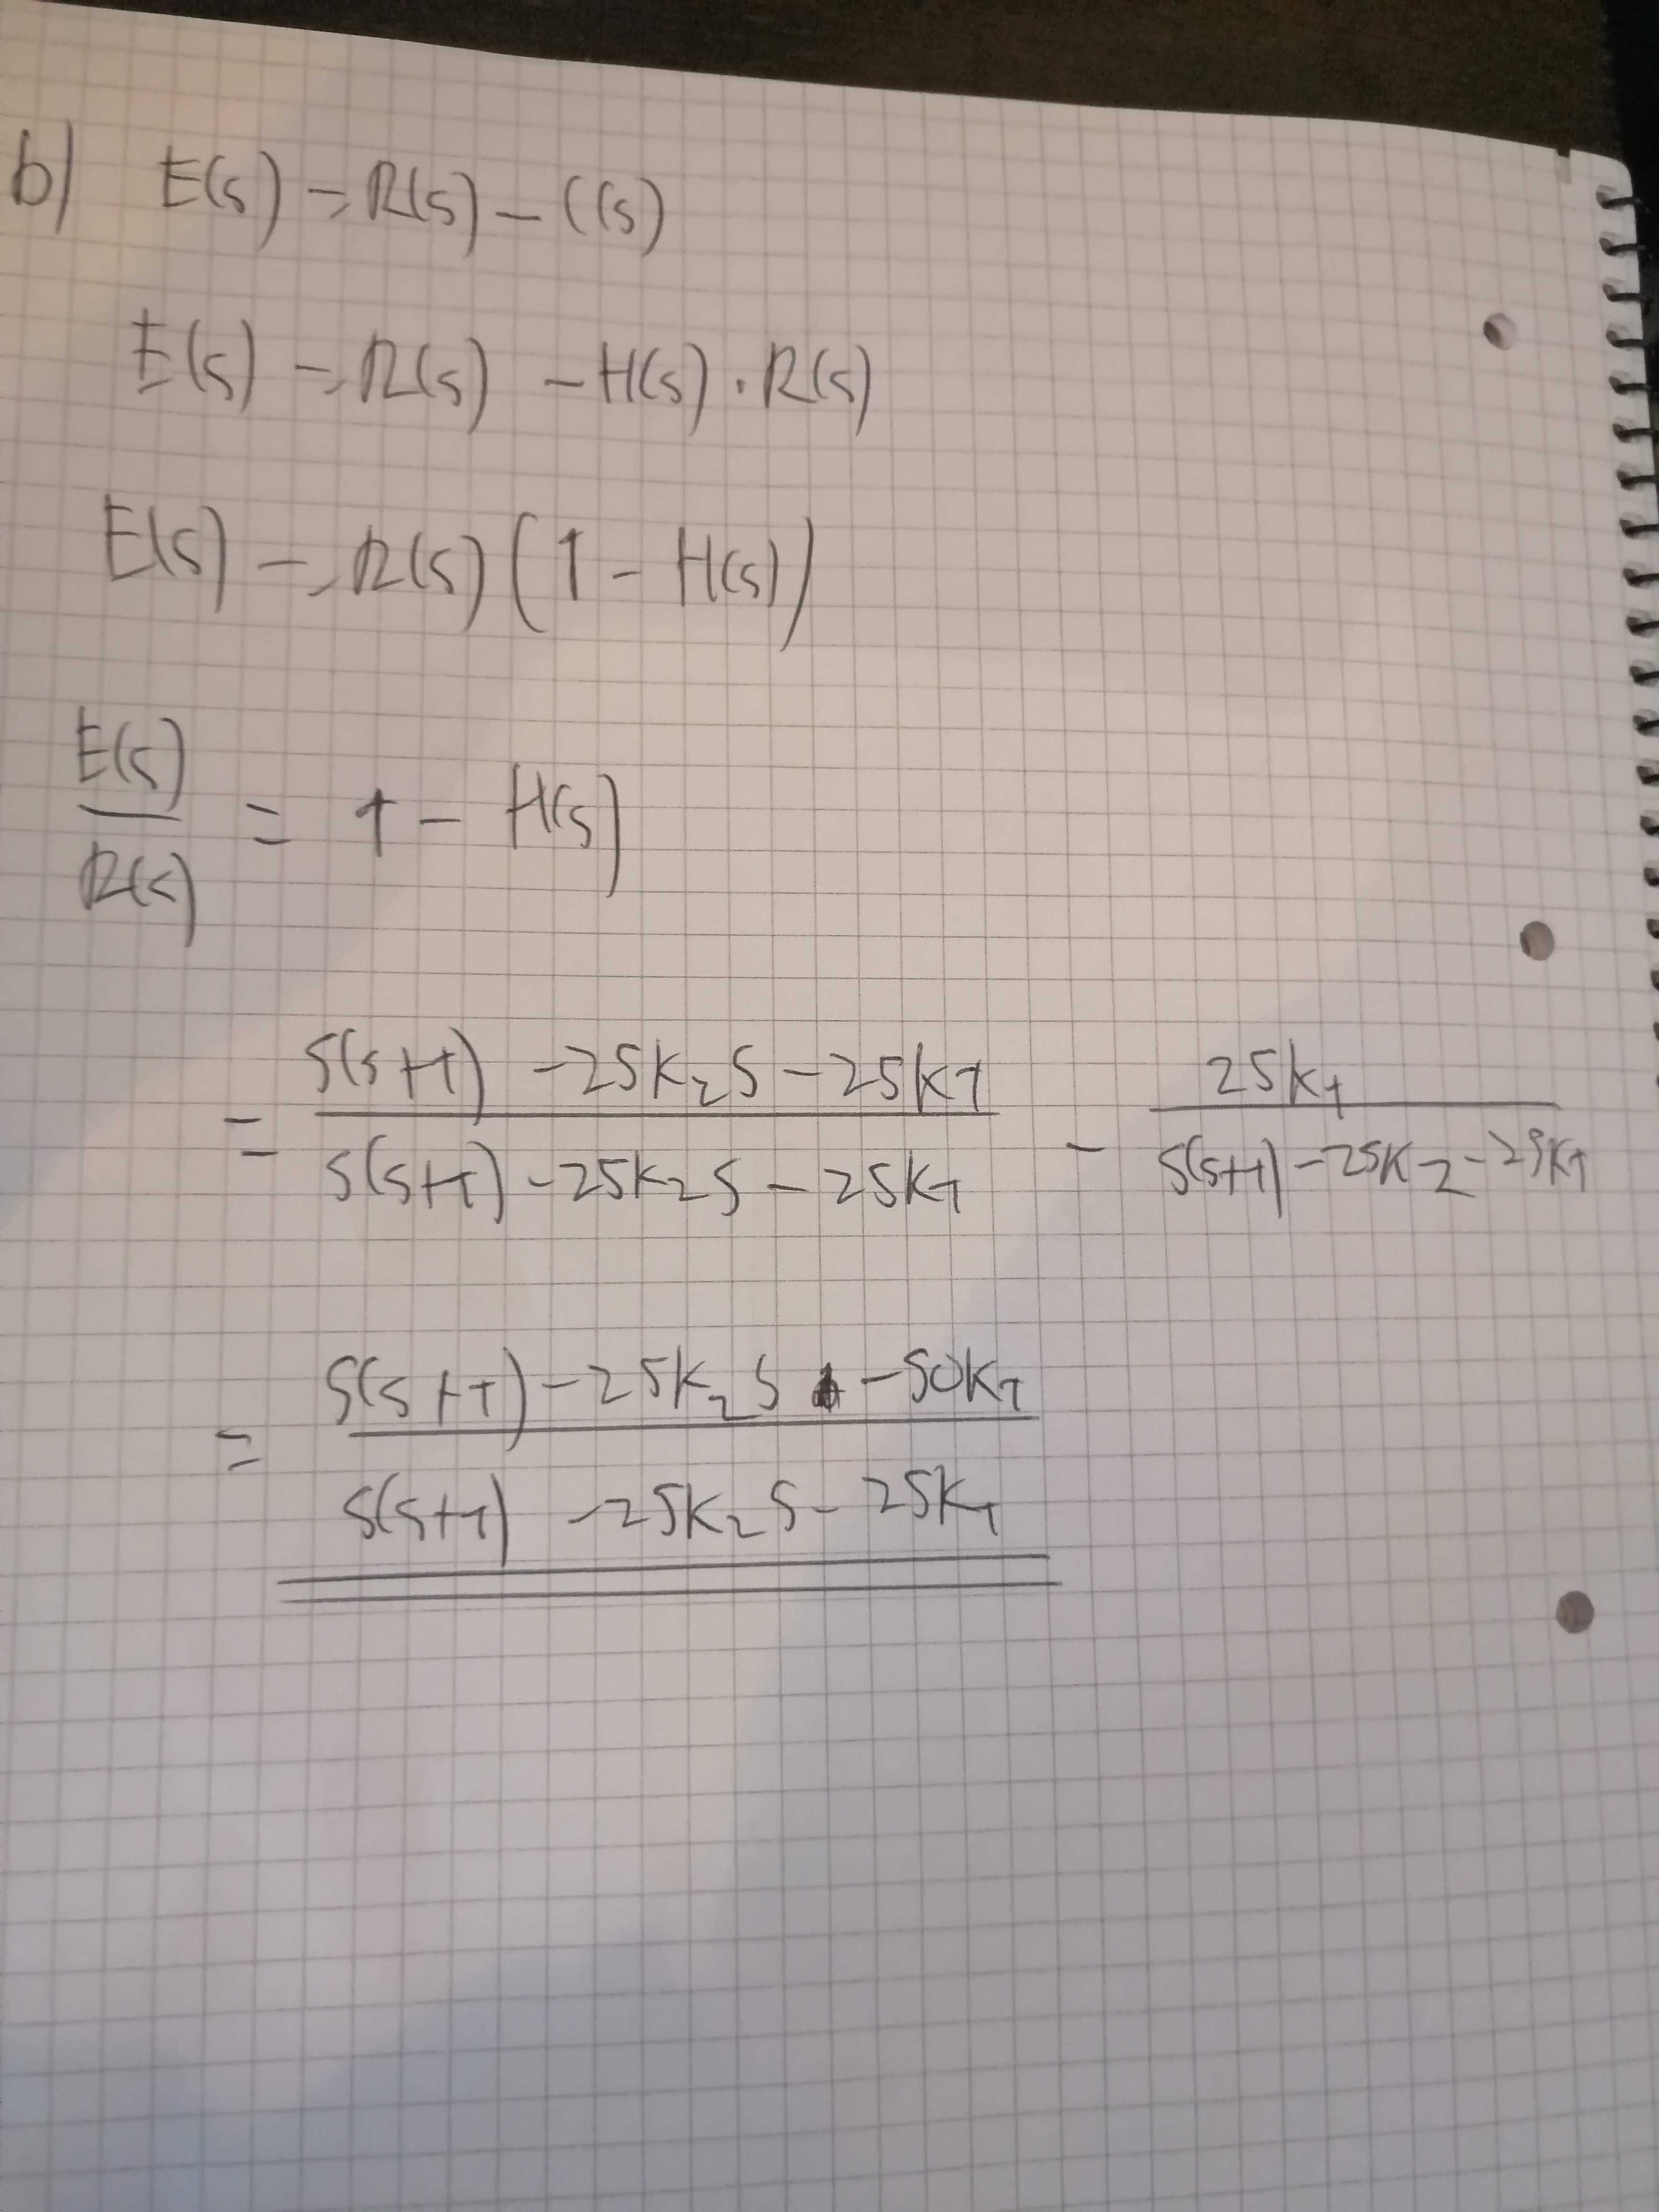 b) E(s) = R(s) - C(s)
E(s) = R(s) - H(s) · R(s)
E(s) = R(s) (1 - H(s))
E(s)/R(s) = 1 - H(s)
= (s(s+1) - 25K₂s - 25K₁)/(s(s+1) - 25K₂s - 25K₁) - 25K₁/(s(s+1) - 25K₂ - 25K₁)
= (s(s+1) - 25K₂s - 50K₁)/(s(s+1) - 25K₂s - 25K₁)